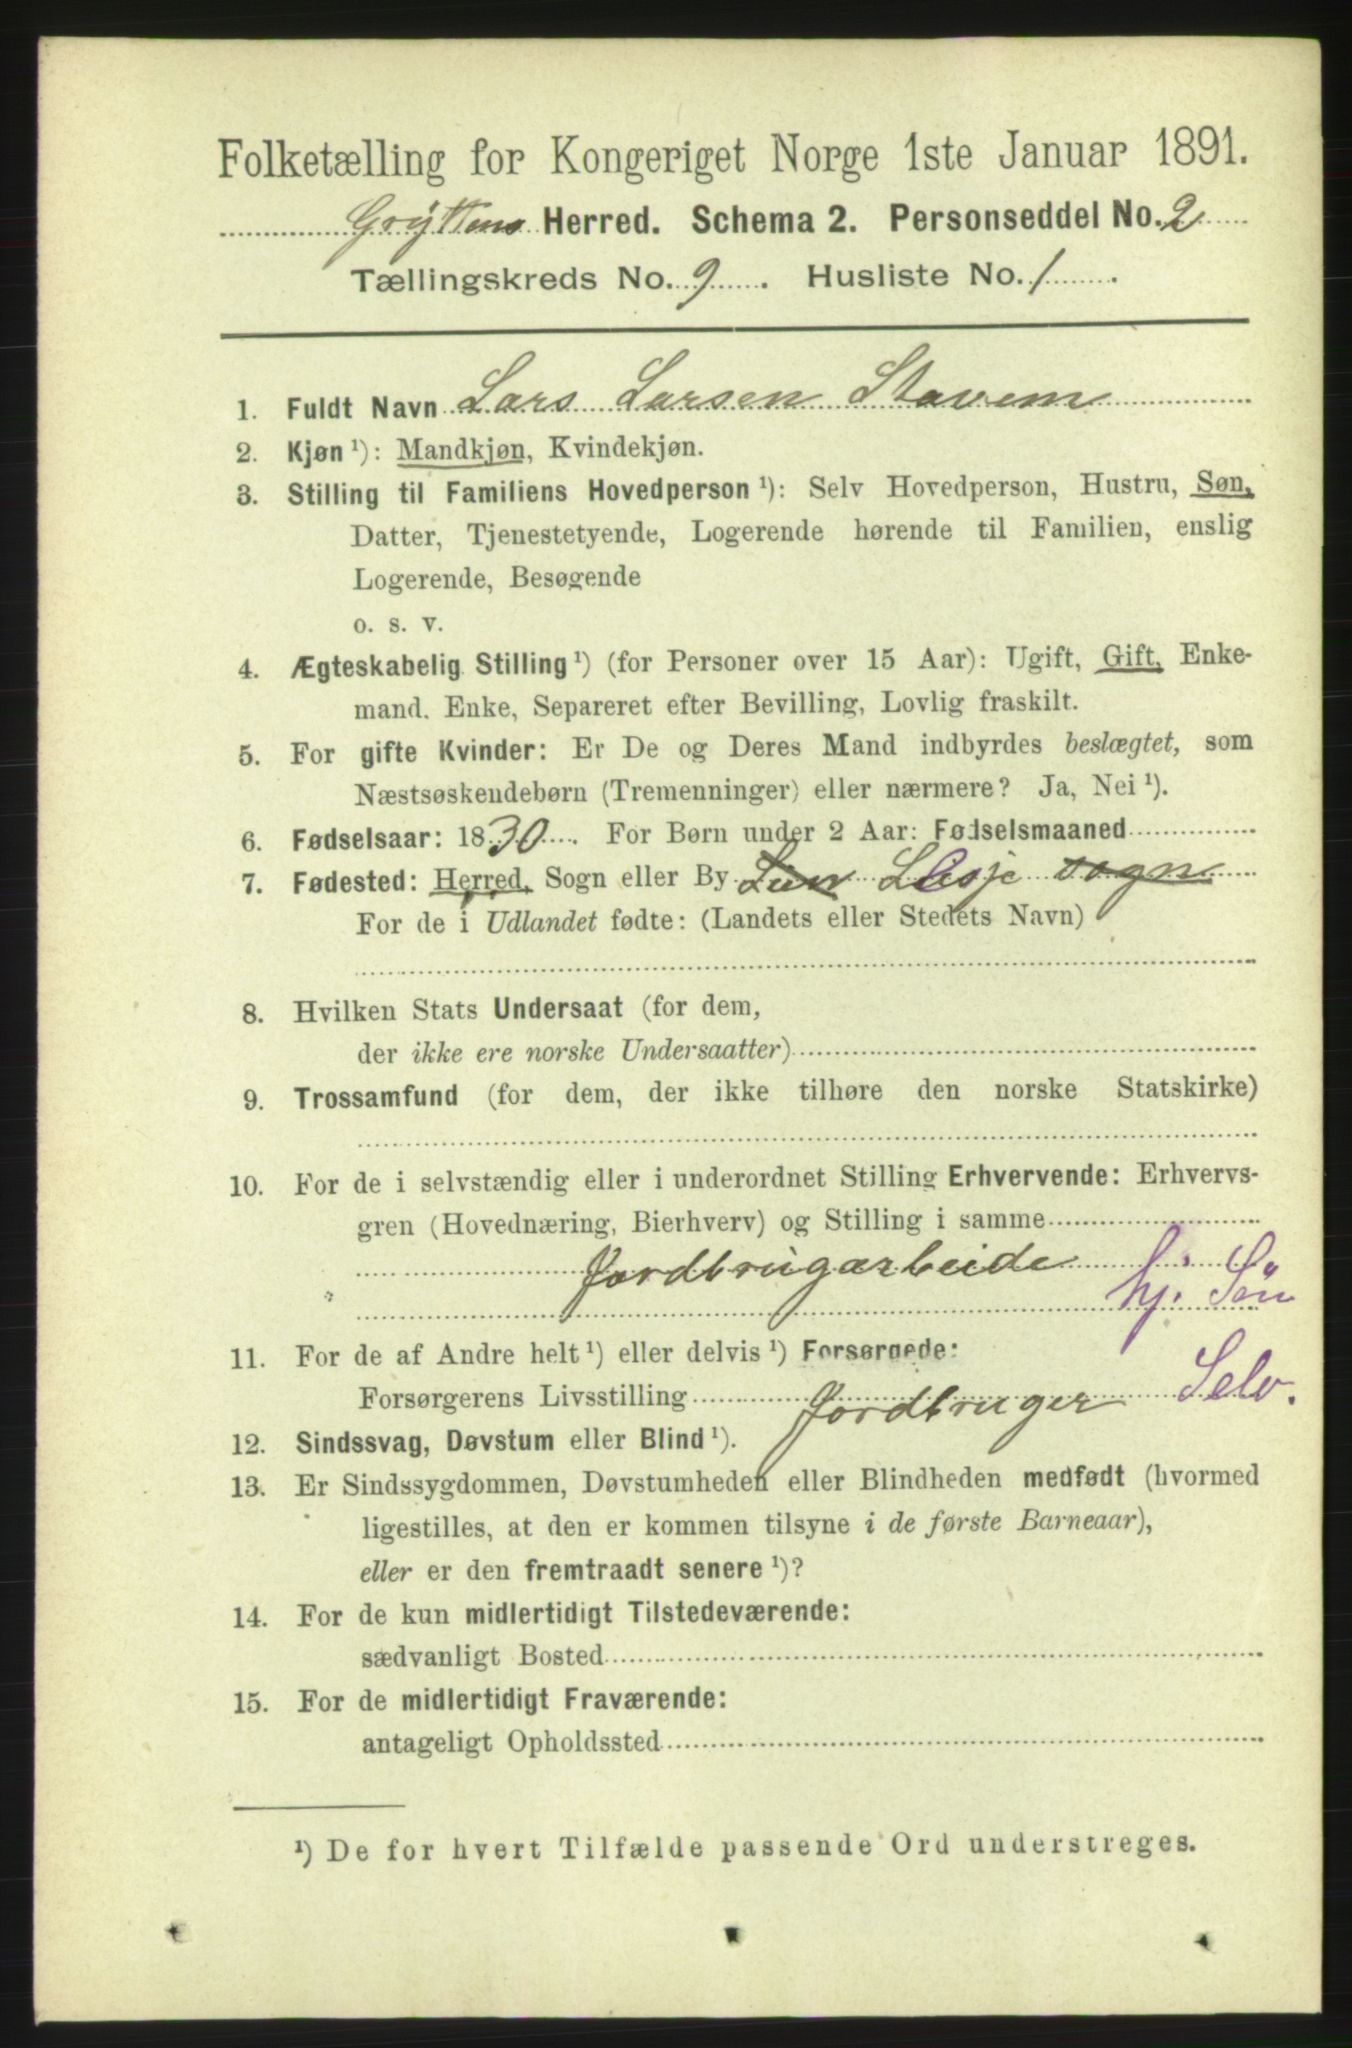 Folketælling for Kongeriget Norge 1ste Januar 1891.
Gryttens Herred. Schema 2. Personseddel No. 2
Tællingskreds No. 9. Husliste No. 1.
1. Fuldt Navn Lars Larsen Stavem
2. Kjøn ¹): Mandkjøn, Kvindekjøn.
3. Stilling til Familiens Hovedperson ¹): Selv Hovedperson, Hustru, Søn,
Datter, Tjenestetyende, Logerende hørende til Familien, enslig
Logerende, Besøgende
o. s. v.
4. Ægteskabelig Stilling ¹) (for Personer over 15 Aar): Ugift, Gift, Enke-
mand. Enke, Separeret efter Bevilling, Lovlig fraskilt.
5. For gifte Kvinder: Er De og Deres Mand indbyrdes beslægtet, som
Næstsøskendebørn (Tremenninger) eller nærmere? Ja, Nei ¹).
6. Fødselsaar: 1830. For Børn under 2 Aar: Fødselsmaaned
7. Fødested: Herred, Sogn eller By Lesje sogn
For de i Udlandet fødte: (Landets eller Stedets Navn)
8. Hvilken Stats Undersaat (for dem,
der ikke ere norske Undersaatter)
9. Trossamfund (for dem, der ikke tilhøre den norske Statskirke)
10. For de i selvstændig eller i underordnet Stilling Erhvervende: Erhvervs-
gren (Hovednæring, Bierhverv) og Stilling i samme
Jordbrugarbeide
hj. Søn
11. For de af Andre helt ¹) eller delvis ¹) Forsørgede:
Forsørgerens Livsstilling Jordbruger Selv.
12. Sindssvag, Døvstum eller Blind ¹).
13. Er Sindssygdommen, Døvstumheden eller Blindheden medfødt (hvormed
ligestilles, at den er kommen tilsyne i de første Barneaar),
eller er den fremtraadt senere ¹)?
14. For de kun midlertidigt Tilstedeværende:
sædvanligt Bosted
15. For de midlertidigt Fraværende:
antageligt Opholdssted
¹) De for hvert Tilfælde passende Ord understreges.